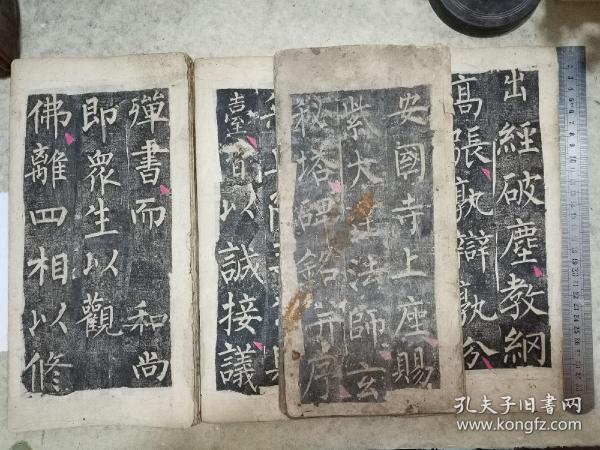 出經破塵教網
高張孰辯孰分
安國寺上座賜
紫大達法師玄
秘塔碑銘并序
皆以誠接議
殫書而 和尚
即眾生以觀
佛離四相以修
孔夫子旧书网
www.kongfz.com